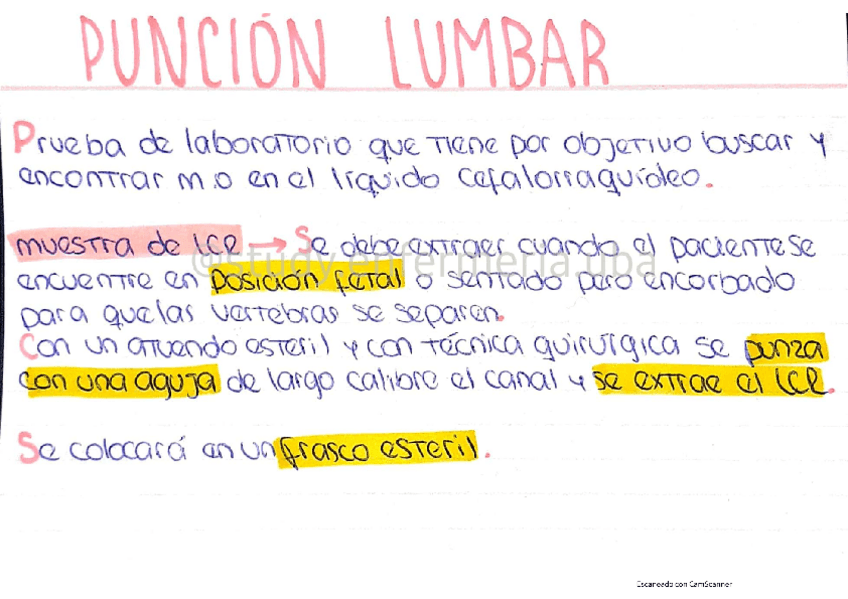 PUNCIÓN LUMBAR
Prueba de laboratorio que tiene por objetivo buscar y
encontrar m.o en el líquido cefalorraquídeo.
muestra de LCR → Se debe extraer cuando el paciente se
@study.enfermeria.uba
encuentre en posición fetal o sentado pero encorbado
para que las vertebras se separen.
Con un atuendo esteril y con técnica quirurgica se punza
con una aguja de largo calibre el canal y se extrae el LCR.
Se colocará en un frasco esteril.
Escaneado con CamScanner